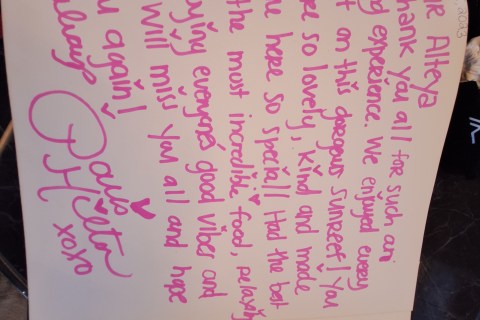 2023
Alteya
hank you all for such an
experience. We enjoyed every
t on this gorgeous sunreef! You
re so lovely, kind and made
e here so special! Had the best
the most incredible food, relaxing
ying everyone's good vibes and
Will miss you all and hope
u again!
always
Paris
Hilton
xoxo